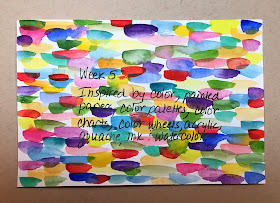 Week 5
Inspired by color, painted
paper, color palettes, color
charts, color wheels, acrylic,
gouache, ink watercolor